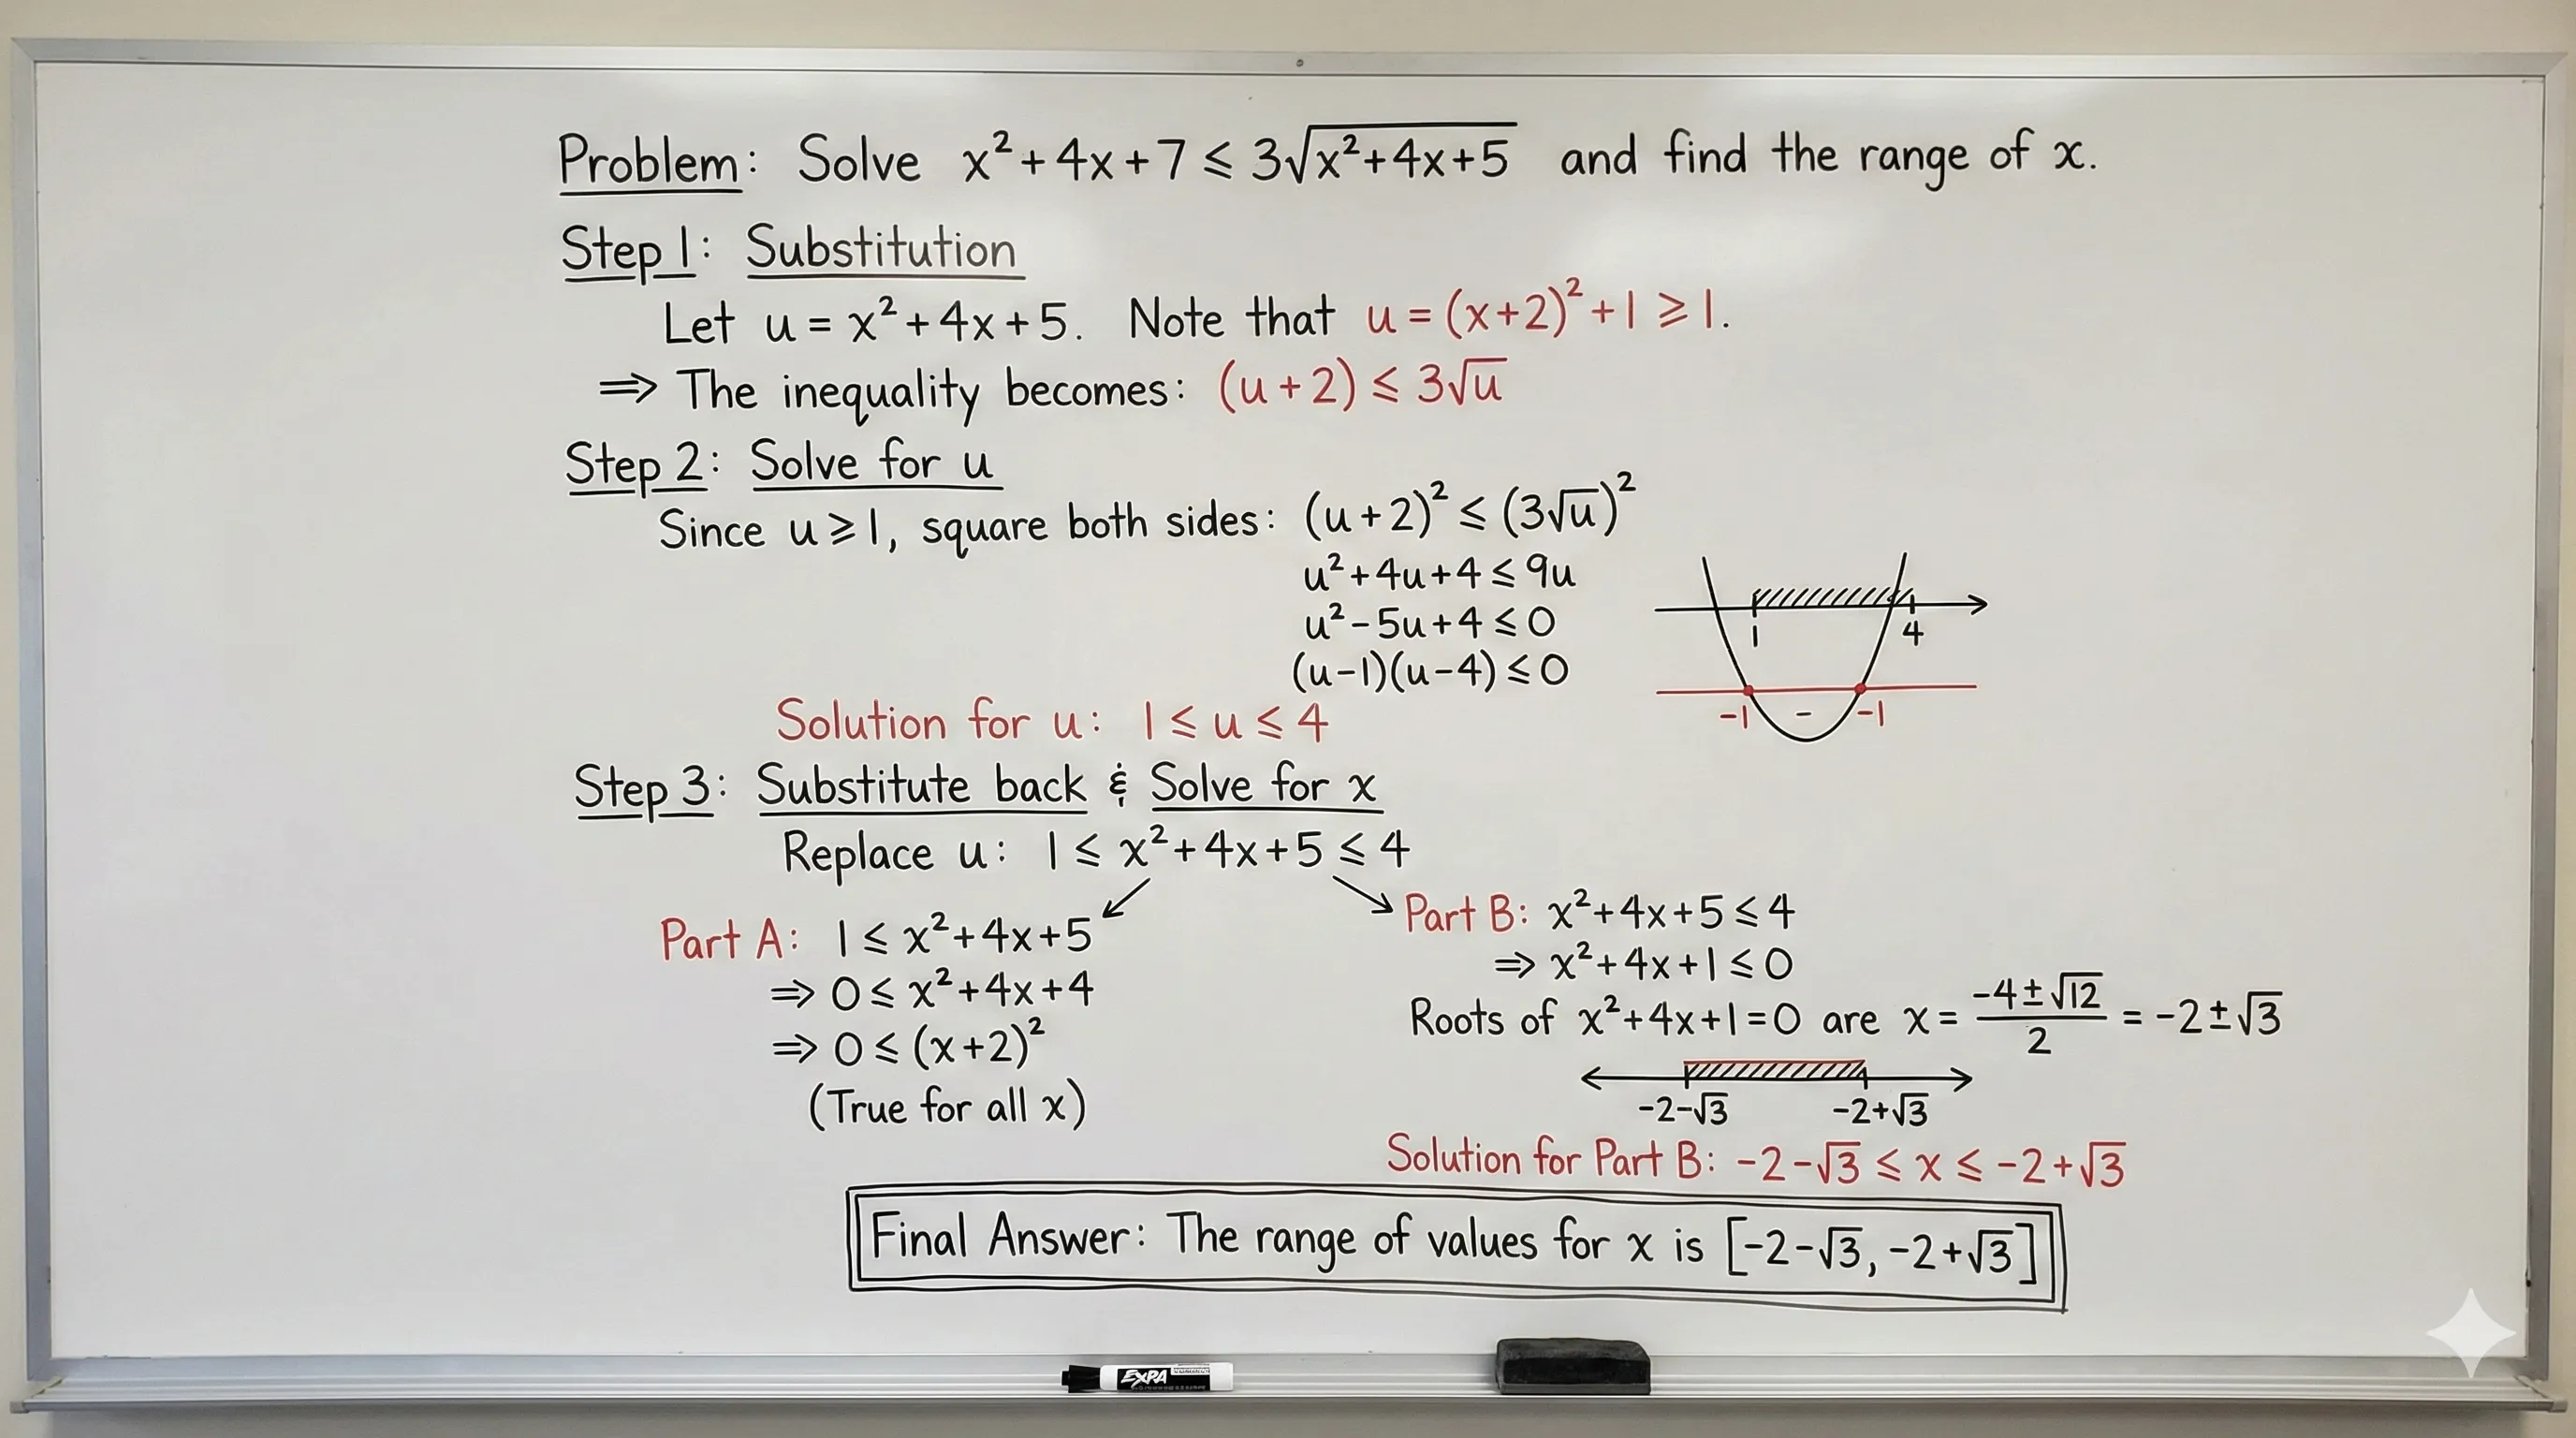 Problem: Solve x²+4x+7 ≤ 3√(x²+4x+5) and find the range of x.
Step 1: Substitution
Let u = x²+4x+5. Note that u = (x+2)²+1 ≥ 1.
⇒ The inequality becomes: (u+2) ≤ 3√u
Step 2: Solve for u
Since u ≥ 1, square both sides: (u+2)² ≤ (3√u)²
u²+4u+4 ≤ 9u
u²-5u+4 ≤ 0
(u-1)(u-4) ≤ 0
1 4
-1 - -1
Solution for u: 1 ≤ u ≤ 4
Step 3: Substitute back & Solve for x
Replace u: 1 ≤ x²+4x+5 ≤ 4
Part A: 1 ≤ x²+4x+5
⇒ 0 ≤ x²+4x+4
⇒ 0 ≤ (x+2)²
(True for all x)
Part B: x²+4x+5 ≤ 4
⇒ x²+4x+1 ≤ 0
Roots of x²+4x+1=0 are x = (-4±√12)/2 = -2±√3
-2-√3 -2+√3
Solution for Part B: -2-√3 ≤ x ≤ -2+√3
Final Answer: The range of values for x is [-2-√3, -2+√3]
EXPA